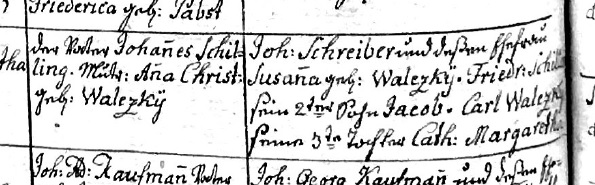 Friederica geb: Pabst
der Vater Johan̄es Schil-
ling. Mutr: An̄a Christ:
geb: Walezkÿ
Joh: Schreiber und deßen Ehefrau
Susan̄a geb: Walezkÿ. Friedr: Schill
sein 2ter Sohn Jacob. Carl Walezkÿ
seine 3te Tochter Cath: Margaretha
tha
Joh: Ad: Kaufman̄ Vater
Joh: Georg Kaufman̄ und deßen Ehe-